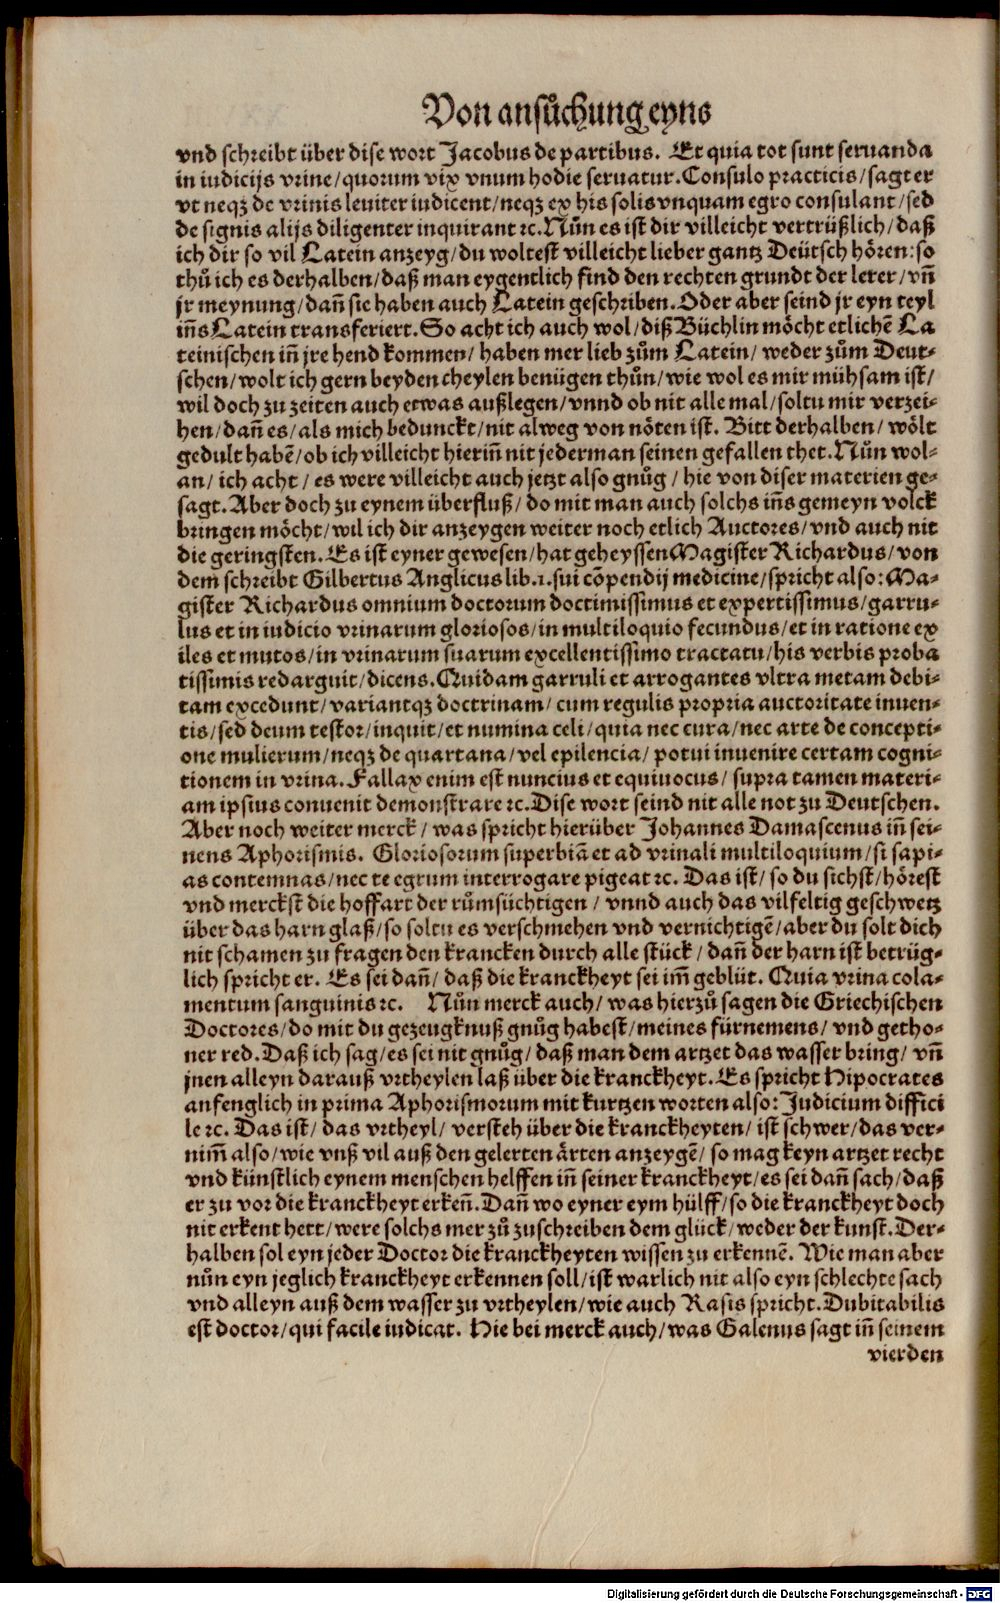 Von ansůchung eyns
vnd schreibt über dise wort Jacobus de partibus. Et quia tot sunt seruanda
in iudicijs vrine/quorum vix vnum hodie seruatur. Consulo practicis/sagt er
vt neqz de vrinis leuiter iudicent/neqz ex his solis vnquam egro consulant/sed
de signis alijs diligenter inquirant ꝛc. Nůn es ist dir villeicht vertrüßlich/daß
ich dir so vil Latein anzeyg/du woltest villeicht lieber gantz Deütsch hören: so
thů ich es derhalben/daß man eygentlich find den rechten grundt der lerer/vñ
jr meynung/dañ sie haben auch Latein geschriben. Oder aber seind jr eyn teyl
iñs Latein transferiert. So acht ich auch wol/diß Büchlin möcht etlichẽ La
teinischen iñ jre hend kommen/haben mer lieb zům Latein/weder zům Deut-
schen/wolt ich gern beyden cheylen benügen thůn/wie wol es mir mühsam ist/
wil doch zu zeiten auch etwas außlegen/vnnd ob nit alle mal/soltu mir verzei-
hen/dañ es/als mich bedunckt/nit alweg von nöten ist. Bitt derhalben/wölt
gedult habẽ/ob ich villeicht hieriñ nit jederman seinen gefallen thet. Nůn wol-
an/ich acht/es were villeicht auch jetzt also gnůg/hie von diser materien ge-
sagt. Aber doch zu eynem überfluß/do mit man auch solchs iñs gemeyn volck
bringen möcht/wil ich dir anzeygen weiter noch etlich Auctores/vnd auch nit
die geringsten. Es ist eyner gewesen/hat geheyssen Magister Richardus/von
dem schreibt Gilbertus Anglicus lib.1. sui cõpendij medicine/spricht also: Ma-
gister Richardus omnium doctorum doctimissimus et expertissimus/garru-
lus et in iudicio vrinarum gloriosos/in multiloquio fecundus/et in ratione ex
iles et mutos/in vrinarum suarum excellentissimo tractatu/his verbis proba
tissimis redarguit/dicens. Quidam garruli et arrogantes vltra metam debi-
tam excedunt/variantqz doctrinam/cum regulis propria auctoritate inuen-
tis/sed deum testor/inquit/et numina celi/quia nec cura/nec arte de concepti-
one mulierum/neqz de quartana/vel epilencia/potui inuenire certam cogni-
tionem in vrina. Fallax enim est nuncius et equiuocus/supra tamen materi-
am ipsius conuenit demonstrare ꝛc. Dise wort seind nit alle not zu Deutschen.
Aber noch weiter merck/was spricht hierüber Johannes Damascenus iñ sei-
nens Aphorismis. Gloriosorum superbiã et ad vrinali multiloquium/si sapi-
as contemnas/nec te egrum interrogare pigeat ꝛc. Das ist/so du sichst/hörest
vnd merckst die hoffart der růmsüchtigen/vnnd auch das vilfeltig geschwetz
über das harn glaß/so soltu es verschmehen vnd vernichtigẽ/aber du solt dich
nit schamen zu fragen den krancken durch alle stück/dañ der harn ist betrüg-
lich spricht er. Es sei dañ/daß die kranckheyt sei im̃ geblüt. Quia vrina cola-
mentum sanguinis ꝛc. Nůn merck auch/was hierzů sagen die Griechischen
Doctores/do mit du gezeugknuß gnůg habest/meines fürnemens/vnd getho-
ner red. Daß ich sag/es sei nit gnůg/daß man dem artzet das wasser bring/vñ
jnen alleyn darauß vrtheylen laß über die kranckheyt. Es spricht Hipocrates
anfenglich in prima Aphorismorum mit kurtzen worten also: Judicium diffici
le ꝛc. Das ist/das vrtheyl/versteh über die kranckheyten/ist schwer/das ver-
nim̃ also/wie vnß vil auß den gelerten ärten anzeygẽ/so mag keyn artzet recht
vnd künstlich eynem menschen helffen iñ seiner kranckheyt/es sei dañ sach/daß
er zu vor die kranckheyt erkeñ. Dañ wo eyner eym hülff/so die kranckheyt doch
nit erkent hett/were solchs mer zů zuschreiben dem glück/weder der kunst. Der-
halben sol eyn jeder Doctor die kranckheyten wissen zu erkennẽ. Wie man aber
nůn eyn jeglich kranckheyt erkennen soll/ist warlich nit also eyn schlechte sach
vnd alleyn auß dem wasser zu vrtheylen/wie auch Rasis spricht. Dubitabilis
est doctor/qui facile iudicat. Hie bei merck auch/was Galenus sagt iñ seinem
vierden
Digitalisierung gefördert durch die Deutsche Forschungsgemeinschaft - DFG